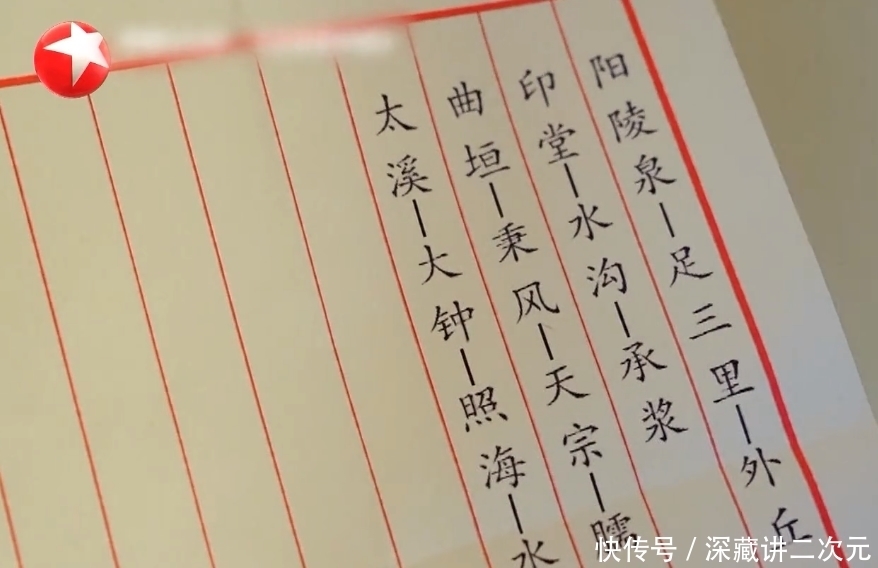 阳陵泉—足三里—外丘
印堂—水沟—承浆
曲垣—秉风—天宗—臑
太溪—大钟—照海—水
快传号 / 深藏讲二次元